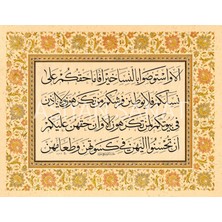 الا واستوصوا بالنساء خيرا فاما حقكم على
نسائكم فلا يوطئن فرشكم من تكرهون ولا يأذن
في بيوتكم لمن تكرهون الا وان حقهن عليكم
ان تحسنوا اليهن في كسوتهن وطعامهن